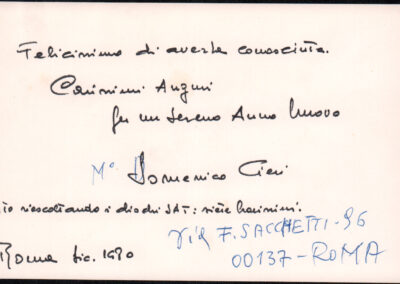 Felicissimo di averla conosciuta.
Carissimi Auguri
per un sereno Anno Nuovo
M° Domenico Cieri
sto riascoltando i dischi SAT: siete bravissimi.
Via F. SACCHETTI - 96
Roma Dic. 1980
00137 - ROMA